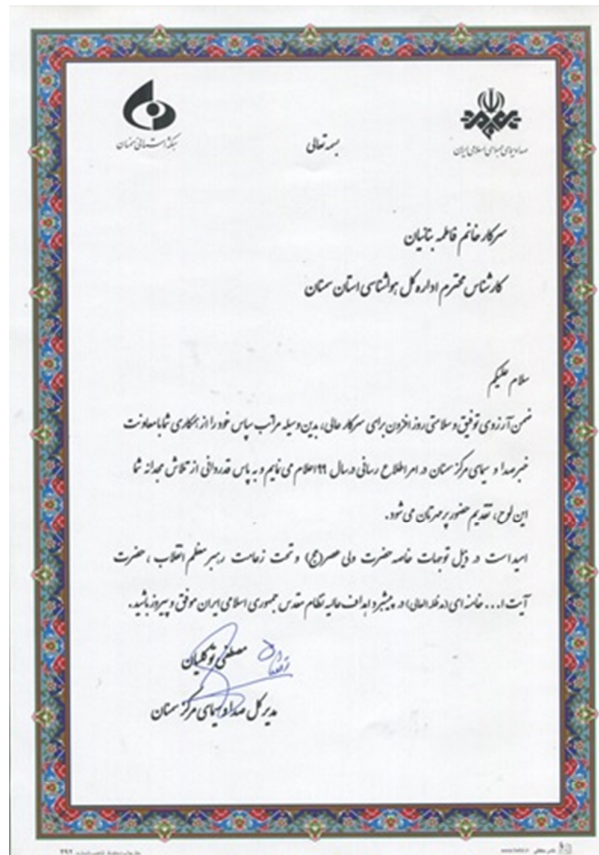 صدا و سیمای جمهوری اسلامی ایران
شبکه استانی سمنان
بسمه تعالی
سرکار خانم فاطمه بنائیان
کارشناس محترم اداره کل هواشناسی استان سمنان
سلام علیکم
ضمن آرزوی توفیق و سلامتی روز افزون برای سرکار عالی، بدین وسیله مراتب سپاس خود را از همکاری شما با معاونت
خبر صدا و سیمای مرکز سمنان در امر اطلاع رسانی در سال ۹۹ اعلام می نمایم و به پاس قدردانی از تلاش مجدانه شما
این لوح، تقدیم حضور پر مهرتان می شود.
امید است در ذیل توجهات خاصه حضرت ولی عصر (عج) و تحت زعامت رهبر معظم انقلاب، حضرت
آیت ا... خامنه ای (مدظله العالی) در پیشبرد اهداف عالیه نظام مقدس جمهوری اسلامی ایران موفق و پیروز باشید.
مصطفی توکلیان
مدیرکل صدا و سیمای مرکز سمنان